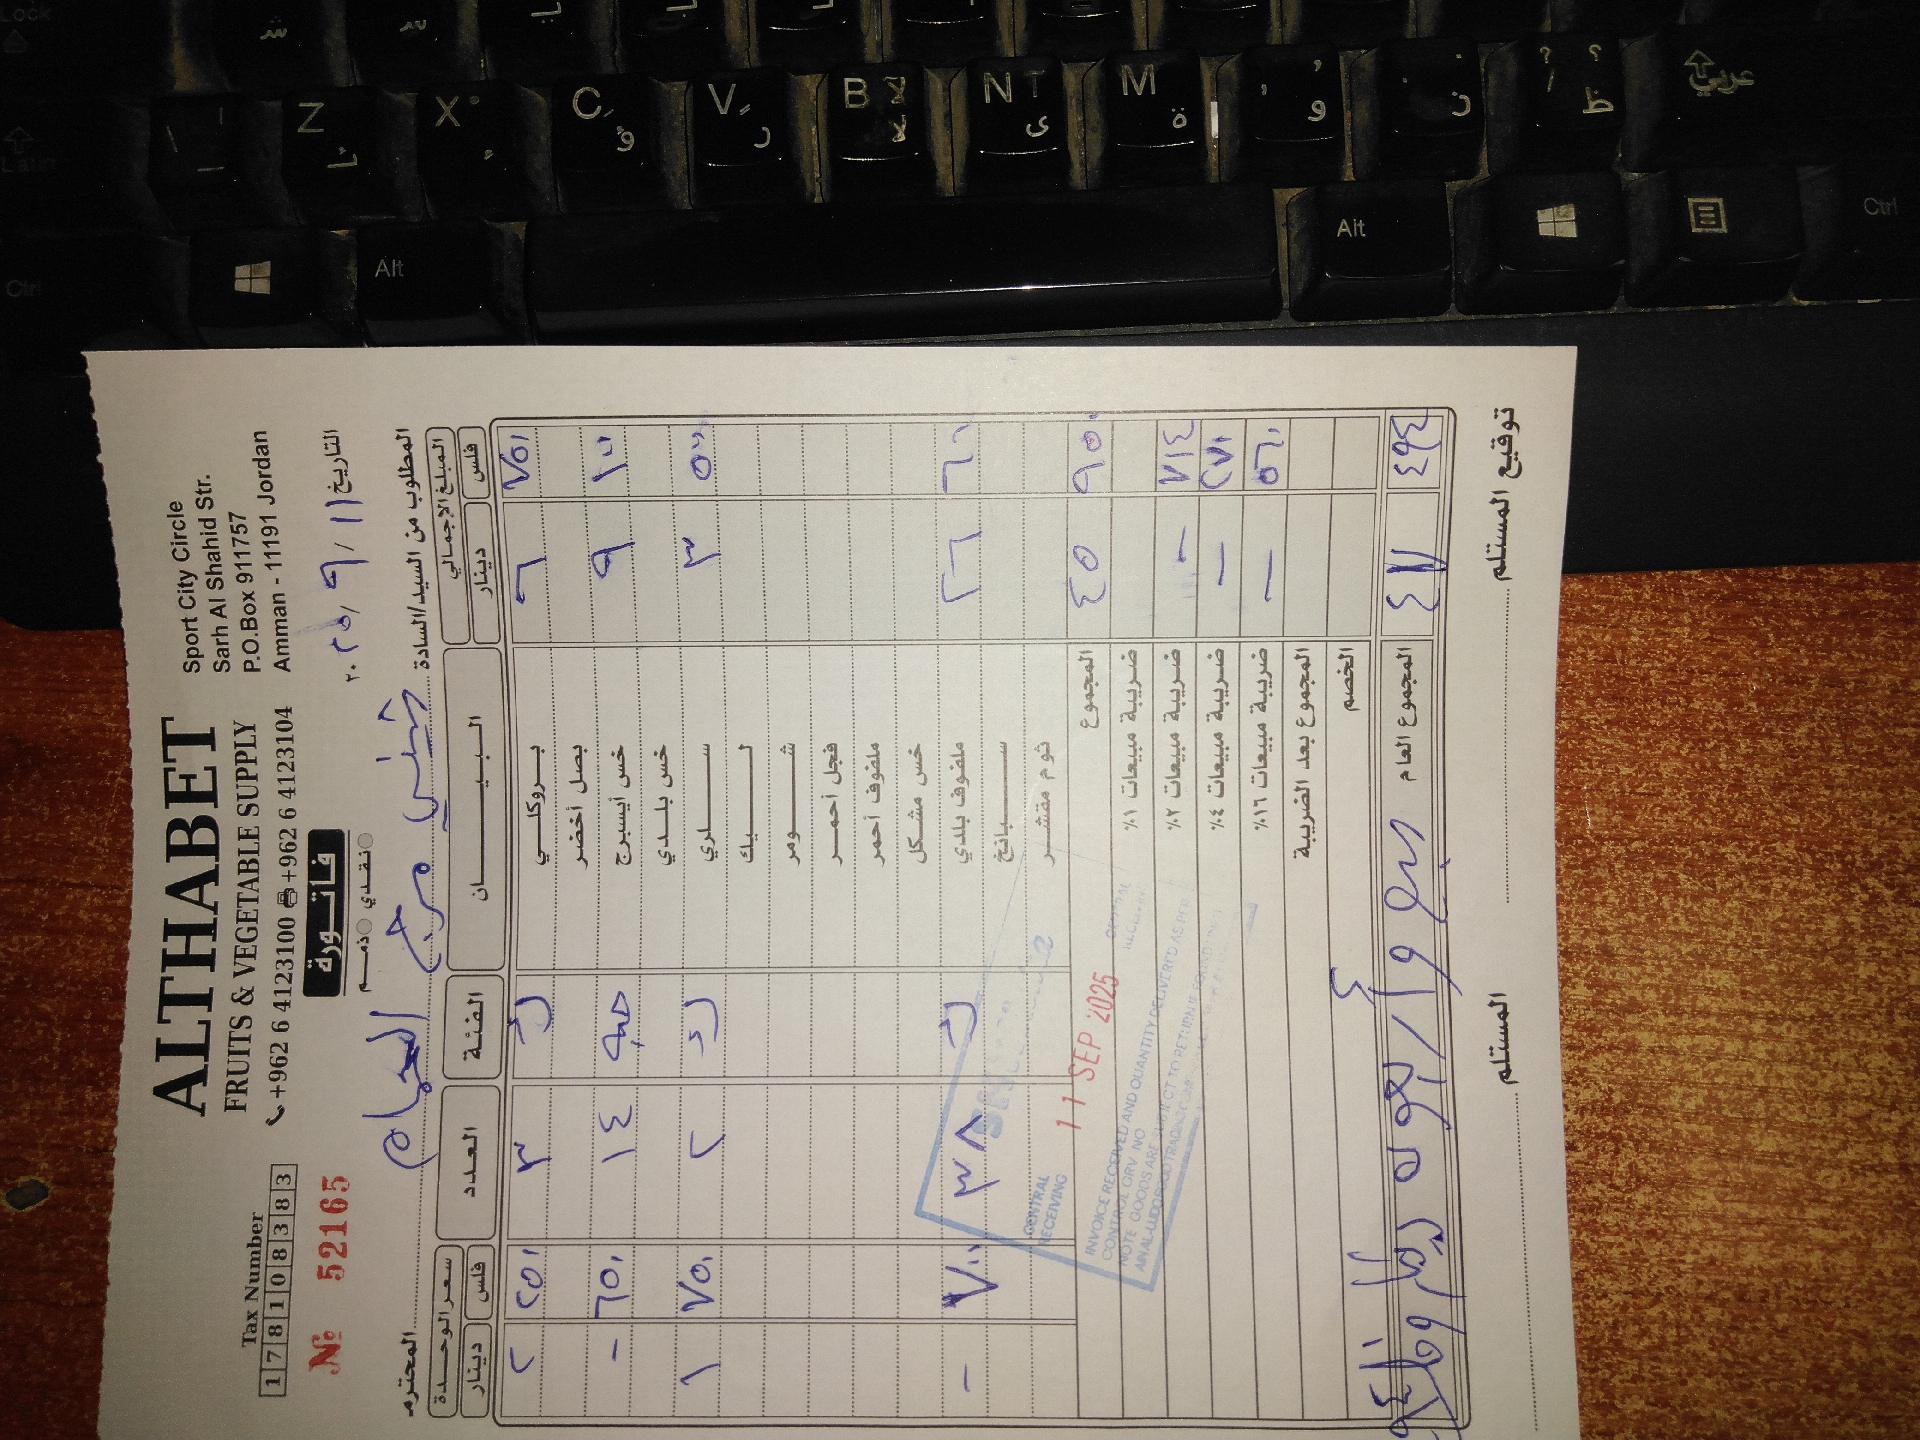 ALTHABET
FRUITS & VEGETABLE SUPPLY
+962 6 4123100 +962 6 4123104
Sport City Circle
Sarh Al Shahid Str.
P.O.Box 911757
Amman - 11191 Jordan
Tax Number
178108383
№ 52165
فاتورة
ذمم نقدي
التاريخ ١١ / ٩ / ٢٠٢٥
المطلوب من السيد/السادة المحترم
المبلغ الإجمالي البيان الفئة العدد سعر الوحدة
فلس دينار فلس دينار
٧٥٠ ٦ بروكلي ٣ ٢٥٠ ٢
بصل أخضر
١٠٠ ٩ خس أيسبرج حبة ١٤ ٦٥٠ -
خس بلدي
٥٠٠ ٣ سلري ٢ ٧٥٠ ١
ليك
شومر
فجل أحمر
ملفوف أحمر
خس مشكل
٦٠٠ ٢٦ ملفوف بلدي ٣٨ ٧٠٠ -
سبانخ
ثوم مقشر
٩٥٠ ٤٥ المجموع
ضريبة مبيعات ١٪
٧١٤ - ضريبة مبيعات ٢٪
٢٧٠ - ضريبة مبيعات ٤٪
٥٦٠ - ضريبة مبيعات ١٦٪
المجموع بعد الضريبة
الخصم
٤٩٤ المجموع العام
11 SEP 2025
CENTRAL
RECEIVING
INVOICE RECEIVED AND QUANTITY DELIVERED AS PER
CONTROL GRV. NO
NOTE GOODS ARE SUBJECT TO RETURN IF FOUND
المستلم توقيع المستلم
Z
X
C
V
B
N
M
Alt
Alt
Ctrl
Ctrl
عربي